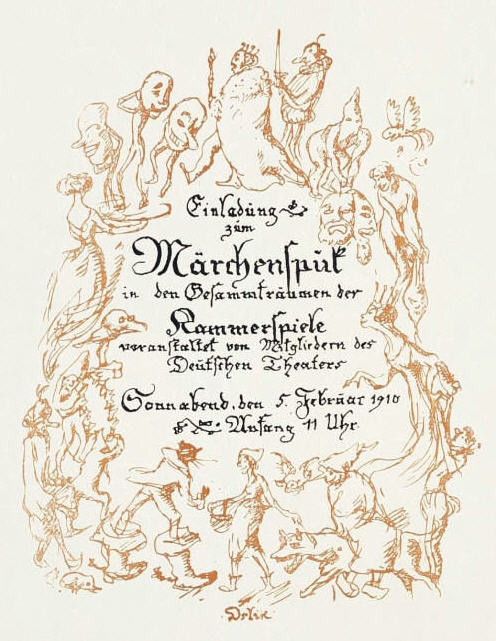 Einladung
zum
Märchenspuk
in den Gesammträumen der
Kammerspiele
veranstaltet von Mitgliedern des
Deutschen Theaters
Sonnabend, den 5. Februar 1910
Anfang 11 Uhr
Orlik